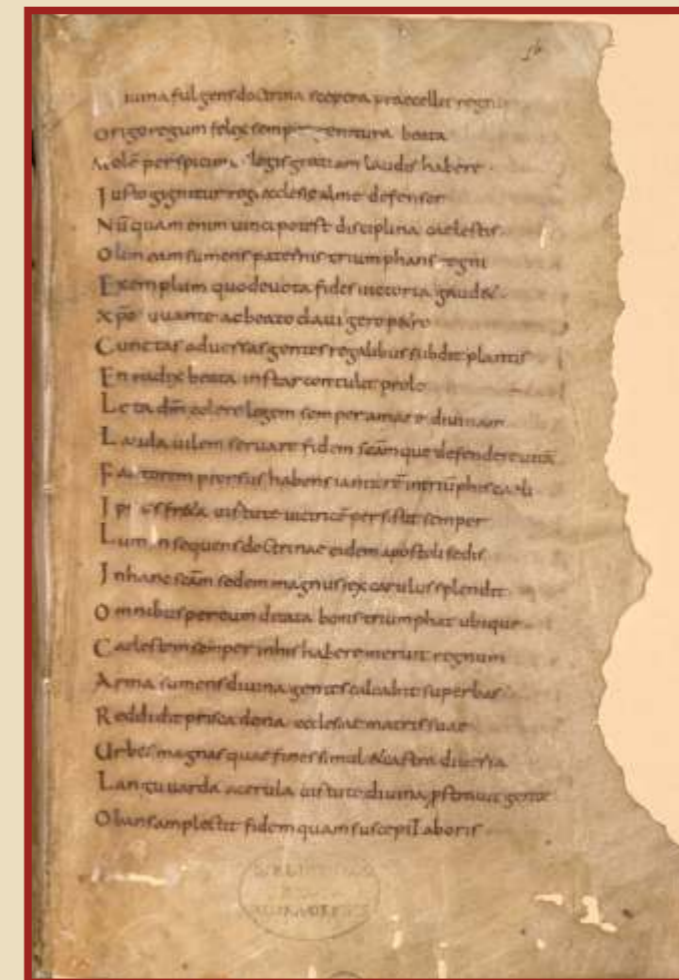 iuina fulgens doctrina scepera praecellit regni
Origo regum felex semper genitura beata
per legis gratiam laudis habere
Iusto gignitur rogi ecclesie alme defensor
Nūquam enim uinci potest disciplina caelestis.
Olim eam sumens paternis triumphans regni
Exemplum quo deuota fides uictoria gaudet.
xp̄o quante ac beato claui gero petro
Cunctas aduersas gentes regalibus subdit plantis
En radix beata instar contulit prolo
Leta dm̄ colere legem semper amare diuinam
seruare fidem scāmque defendere
Fautorem prorsus habens ianitorē in triūphis caeli
uirtute uictricē persistit semper
Lumen sequens doctrinae eidem apostoli sedis
In hanc scām sedem magnus rex carulus splendit
Omnibus per eum ditata bonis triumphat ubique
Caelestem semper in his habere meruit regnum
Arma sumens diuina gentes calcabit superbas
Reddidit prisca dona ecclesiae matri suae
Urbes magnas quae fines simul & castra diuersa
Languuarda acerula uirtute diuina pstrauit gente
Obans amplectit fidem quam suscepit laboris